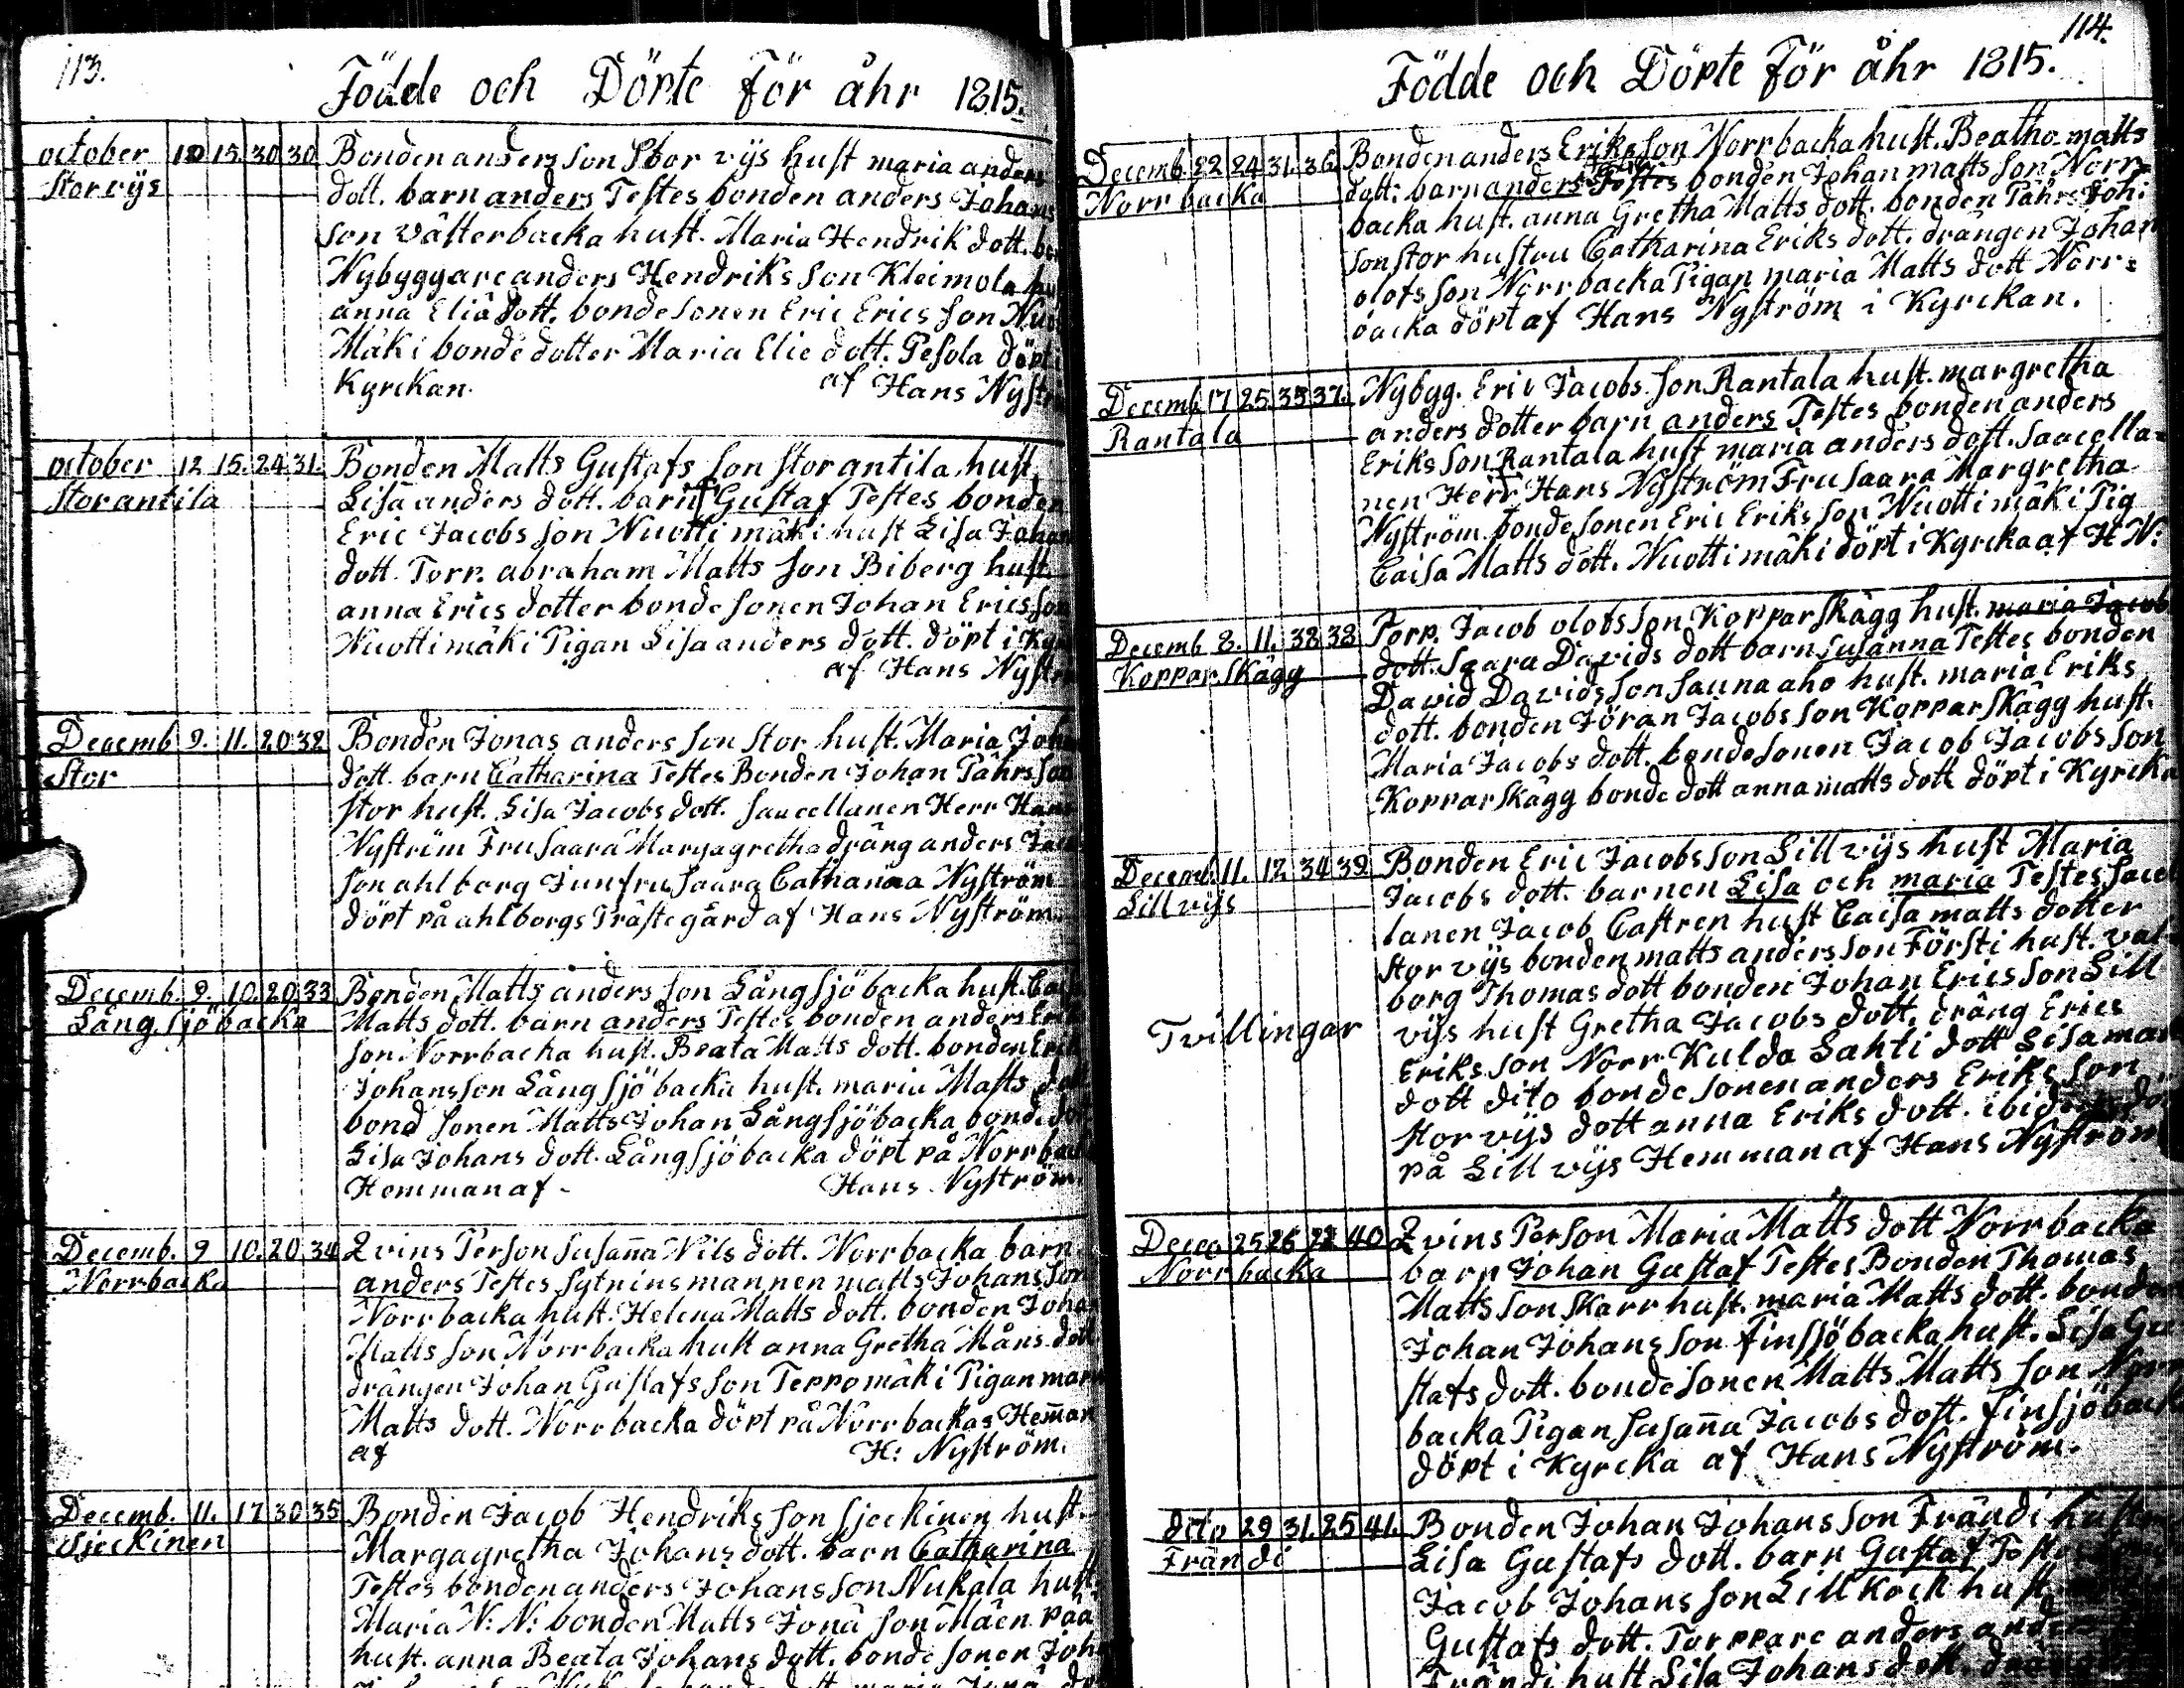 113.
Födde och Döpte för åhr 1815.
october 10 15. 30 30 Bonden anders son Storvijs hust maria anders
Storvijs
dott. barn anders Testes bonden anders Johans
son Västerbacka hust. Maria Hendrik dott.
Nybyggare anders Hendriks son Kleimola
anna Eliä dott. bonde sonen Eric Erics son
Mäki bonde dotter Maria Elie dott. Pesola döpt i
Kyrckan. af Hans
october 12 15. 24. 31. Bonden Matts Gustafs son storantila hust
Storantila
Lisa anders dott. barn Gustaf Testes bonden
Eric Jacobs son Nuottimäki hust Lisa Johan
dott. Torp. abraham Matts son Biberg hust.
anna Erics dotter bonde sonen Johan Erics son
Nuottimäki Pigan Lisa anders dott. döpt i
af Hans
Decemb 9. 11. 20 32 Bonden Jonas anders son stor hust. Maria
Stor
dott. barn Catharina Testes Bonden Johan Pährs son
stor hust. Lisa Jacobs dott. Sacellanen Herr Hans
Nyström Fru Saara Margagretha dräng anders
son ahlborg Junfru Saara Catharina Nyström
döpt på ahlborgs Prästegård af Hans Nyström.
Decemb. 9. 10. 20 33 Bonden Matts anders son Långsjöbacka hust.
Långsjöbacka
Matts dott. barn anders Testes bonden anders
son Norrbacka hust. Beata Matts dott. bonden
Johansson Långsjöbacka hust. maria Matts
bond sonen Matts Johan Långsjöbacka bonde
Lisa Johans dott. Långsjöbacka döpt på Norrbacka
Hemman af - Hans Nyström.
Decemb. 9 10. 20 34 Qvins Person Susanna Nils dott. Norrbacka barn
Norrbacka
anders Testes Sytnins mannen matts Johans son
Norrbacka hust. Helena Matts dott. bonden Johan
Matts son Norrbacka hust anna Gretha Måns dott
drängen Johan Gustafs son Teppomäki Pigan
Matts dott. Norrbacka döpt på Norrbackas Hem̄an
af H: Nyström.
Decemb. 11. 17 30 35 Bonden Jacob Hendriks son Sjeckinen hust.
Sjeckinen
Margagretha Johans dott. barn Catharina
Testes bonden anders Johans son Nukala hust.
Maria N: N: bonden Matts Jonä son Mäen
hust. anna Beata Johans dott. bonde sonen
114.
Födde och Döpte för åhr 1815.
Decemb. 22 24 31. 36. Bonden anders Eriks son Norrbacka hust. Beatha matts
Norrbacka
dott: barn anders Testes bonden Johan matts son Norr=
backa hust. anna Gretha Matts dott. bonden Pähr Joh:
son stor hustru Catharina Eriks dott. drängen Johan
olofs son Norrbacka Pigan maria Matts dott Norr=
backa döpt af Hans Nyström i Kyrckan.
Decemb 17 25. 35 37. Nybyg. Eric Jacobs son Rantala hust. margretha
Rantala
anders dotter barn anders Testes bonden anders
Eriks son Rantala hust maria anders dott. Sacella=
nen Herr Hans Nyström Fru Saara Margretha
Nyström bonde sonen Eric Eriks son Nuottimäki Pig
Caisa Matts dott. Nuottimäki döpt i Kyrcka af H N:
Decemb 8. 11. 38 38 Torp. Jacob olofs son Kopparskägg hust. maria Jacob
Kopparskägg
dott. Saara Davids dott barn Susanna Testes bonden
David Davids son Saunaaho hust. maria Eriks
dott. bonden Jöran Jacobs son Kopparskägg hust.
Maria Jacobs dott. bonde sonen Jacob Jacobs son
Kopparskägg bonde dott anna matts dott döpt i Kyrcka
Decemb. 11. 12. 34 39 Bonden Eric Jacobs son Lillvijs hust Maria
Lillvijs
Jacobs dott. barnen Lisa och maria Testes
lanen Jacob Castren hust Caisa matts dotter
Storvijs bonden matts anders son Försti hust. val
borg Thomas dott bonden Johan Erics son Lill
Tvillingar
vijs hust Gretha Jacobs dott. dräng Erics
Eriks son Norr Kulda Lahti dott Lisa
dott dito bonde sonen anders Eriks son
Storvijs dott anna Eriks dott.
på Lillvijs Hemman af Hans Nyström
25 26 22 40 Qvins Person Maria Matts dott Norrbacka
Norrbacka
barn Johan Gustaf Testes Bonden Thomas
Matts son Skarr hust. maria Matts dott. bonden
Johan Johans son finsjöbacka hust. Lisa Gu
stafs dott. bonde sonen Matts Matts son Norr
backa Pigan Susanna Jacobs dott. finsjöback
döpt i Kyrcka af Hans Nyström.
dito 29 31. 25 41. Bonden Johan Johans son Frändi
Frändi
Lisa Gustafs dott. barn Gustaf
Jacob Johans son Lillkock hust
Gustafs dott. Torppare anders
Frändi hust Lisa Johans dott.